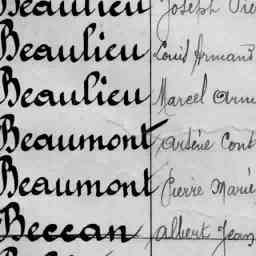 Beaulieu Joseph
Beaulieu Louis Armand
Beaulieu Marcel
Beaumont Arsène
Beaumont Pierre Marie
Beccan Albert Jean